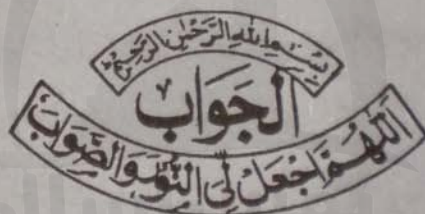 بِسْمِ اللهِ الرَّحْمٰنِ الرَّحِيْمِ
الجَوَابُ
اَللّٰهُمَّ اجْعَلْ لِّی النُّوْرَ وَالصَّوَابَ